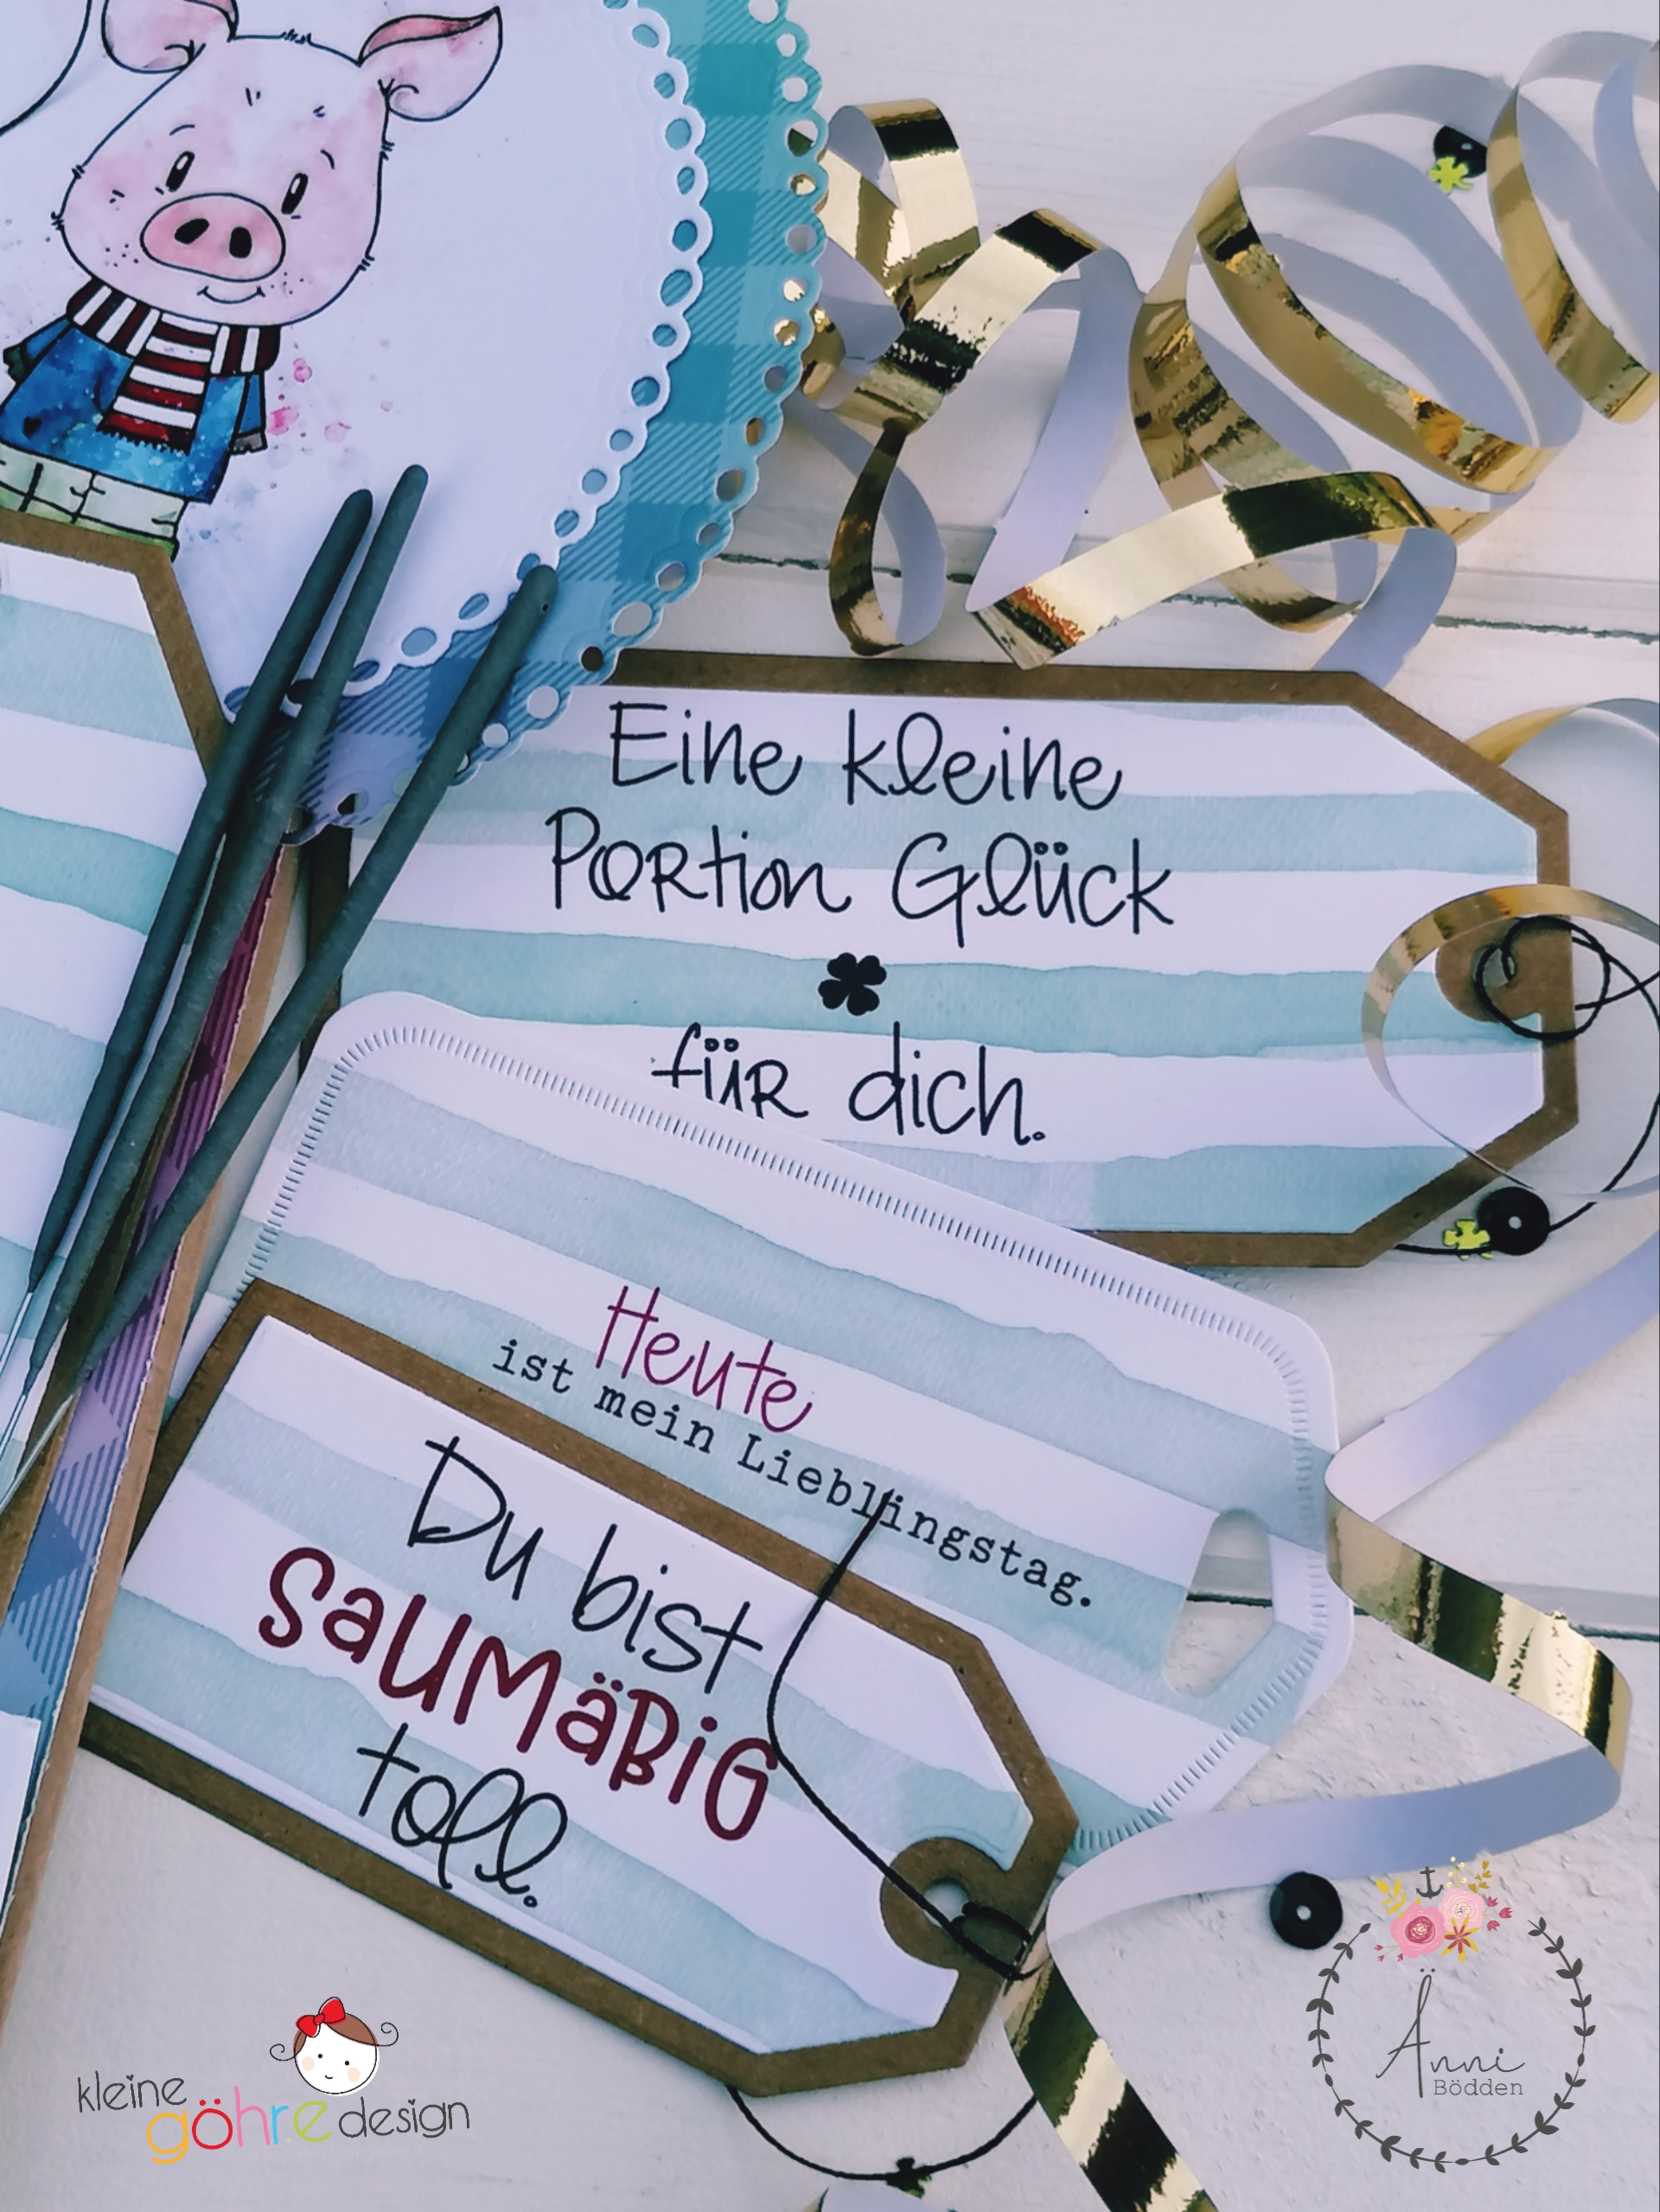 Eine kleine
Portion Glück
für dich.
Heute
ist mein Lieblingstag.
Du bist
saumäßig
toll.
kleine
göhre design
Änni
Bödden